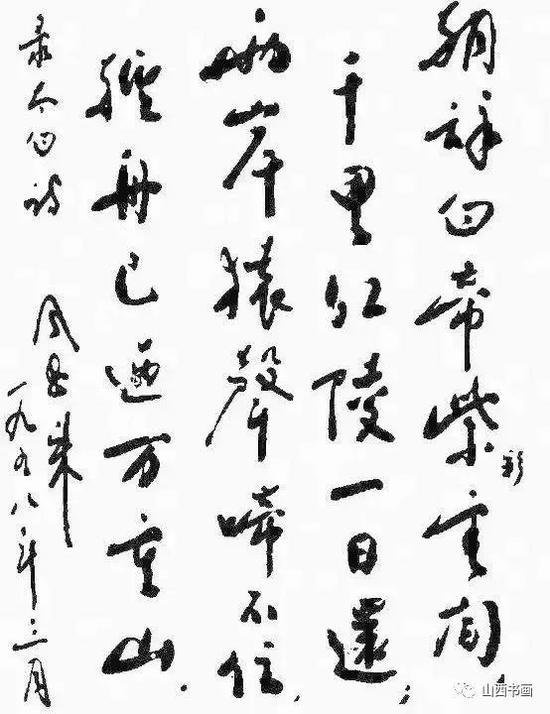 朝辞白帝紫云间,
彩
千里江陵一日還;
兩岸猿聲啼不住,
輕舟已過万重山.
录太白诗
周恩来
一九五八年三月
山西书画